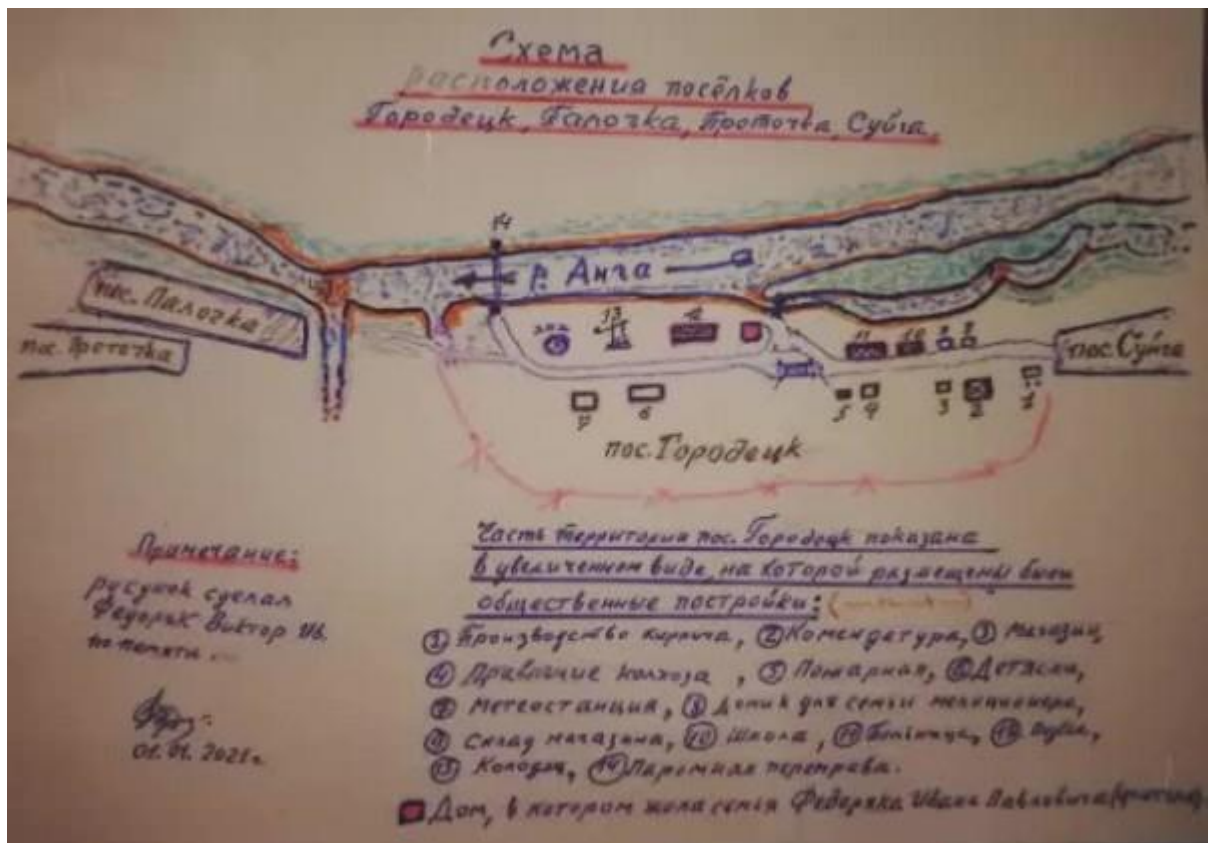 Схема
расположения посёлков
Городецк, Палочка, Проточка, Суйга.
14
р. Анга
пос. Палочка
пос. Проточка
13
12
11
10
9
8
пос. Суйга
7
6
5
4
3
2
1
пос. Городецк
Примечание:
рисунок сделал
Федоряк Виктор Ив.
по памяти
01.01.2021г.
Часть территории пос. Городецк показана
в увеличенном виде, на которой размещены были
общественные постройки:
① Производство кирпича, ② Комендатура, ③ Магазин,
④ Правление колхоза, ⑤ Пожарная, ⑥ Детясли,
⑦ Метеостанция, ⑧ Домик для семьи милиционера,
⑨ Склад магазина, ⑩ Школа, ⑪ Больница, ⑫
⑬ Колодец, ⑭ Паромная переправа.
Дом, в котором жила семья Федоряка Ивана Павловича